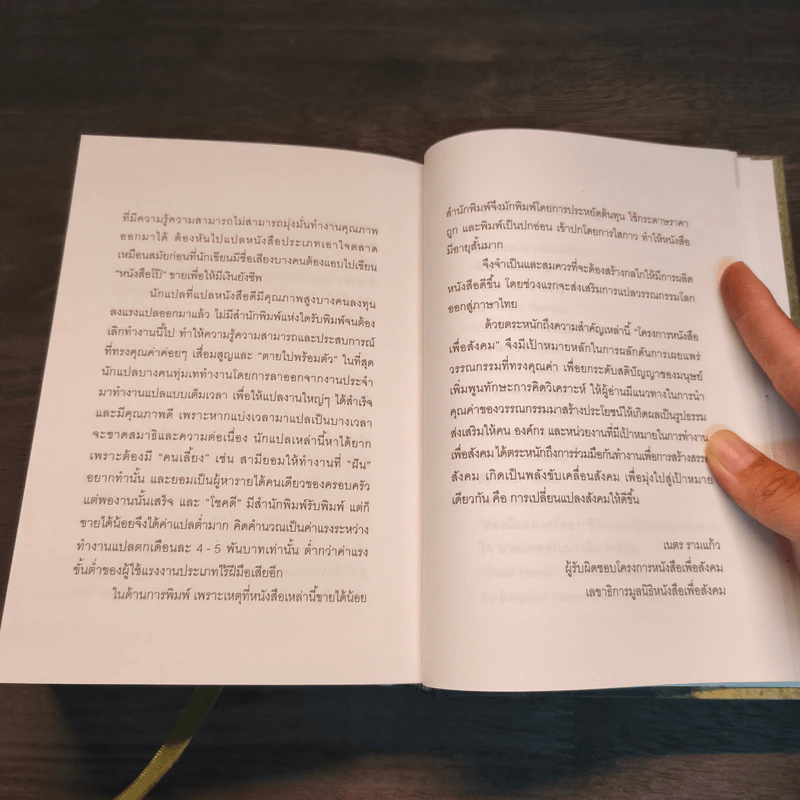 ที่มีความรู้ความสามารถไม่สามารถมุ่งมั่นทำงานคุณภาพ
ออกมาได้ ต้องหันไปแปลหนังสือประเภทเอาใจตลาด
เหมือนสมัยก่อนที่นักเขียนมีชื่อเสียงบางคนต้องแอบไปเขียน
“หนังสือโป๊” ขายเพื่อให้มีเงินยังชีพ
นักแปลที่แปลหนังสือดีมีคุณภาพสูงบางคนลงทุน
ลงแรงแปลออกมาแล้ว ไม่มีสำนักพิมพ์แห่งใดรับพิมพ์จนต้อง
เลิกทำงานนี้ไป ทำให้ความรู้ความสามารถและประสบการณ์
ที่ทรงคุณค่าค่อยๆ เสื่อมสูญและ “ตายไปพร้อมตัว” ในที่สุด
นักแปลบางคนทุ่มเททำงานโดยการลาออกจากงานประจำ
มาทำงานแปลแบบเต็มเวลา เพื่อให้แปลงานใหญ่ๆ ได้สำเร็จ
และมีคุณภาพดี เพราะหากแบ่งเวลามาแปลเป็นบางเวลา
จะขาดสมาธิและความต่อเนื่อง นักแปลเหล่านี้หาได้ยาก
เพราะต้องมี “คนเลี้ยง” เช่น สามียอมให้ทำงานที่ “ฝัน”
อยากทำนั้น และยอมเป็นผู้หารายได้คนเดียวของครอบครัว
แต่พองานนั้นเสร็จ และ “โชคดี” มีสำนักพิมพ์รับพิมพ์ แต่ก็
ขายได้น้อยจึงได้ค่าแปลต่ำมาก คิดคำนวณเป็นค่าแรงระหว่าง
ทำงานแปลตกเดือนละ 4 - 5 พันบาทเท่านั้น ต่ำกว่าค่าแรง
ขั้นต่ำของผู้ใช้แรงงานประเภทไร้ฝีมือเสียอีก
ในด้านการพิมพ์ เพราะเหตุที่หนังสือเหล่านี้ขายได้น้อย
สำนักพิมพ์จึงมักพิมพ์โดยการประหยัดต้นทุน ใช้กระดาษราคา
ถูก และพิมพ์เป็นปกอ่อน เข้าปกโดยการไสกาว ทำให้หนังสือ
มีอายุสั้นมาก
จึงจำเป็นและสมควรที่จะต้องสร้างกลไกให้มีการผลิต
หนังสือดีขึ้น โดยช่วงแรกจะส่งเสริมการแปลวรรณกรรมโลก
ออกสู่ภาษาไทย
ด้วยตระหนักถึงความสำคัญเหล่านี้ “โครงการหนังสือ
เพื่อสังคม” จึงมีเป้าหมายหลักในการผลักดันการเผยแพร่
วรรณกรรมที่ทรงคุณค่า เพื่อยกระดับสติปัญญาของมนุษย์
เพิ่มพูนทักษะการคิดวิเคราะห์ ให้ผู้อ่านมีแนวทางในการนำ
คุณค่าของวรรณกรรมมาสร้างประโยชน์ให้เกิดผลเป็นรูปธรรม
ส่งเสริมให้คน องค์กร และหน่วยงานที่มีเป้าหมายในการทำงาน
เพื่อสังคม ได้ตระหนักถึงการร่วมมือกันทำงานเพื่อการสร้างสรร
สังคม เกิดเป็นพลังขับเคลื่อนสังคม เพื่อมุ่งไปสู่เป้าหมาย
เดียวกัน คือ การเปลี่ยนแปลงสังคมให้ดีขึ้น
เนตร รามแก้ว
ผู้รับผิดชอบโครงการหนังสือเพื่อสังคม
เลขาธิการมูลนิธิหนังสือเพื่อสังคม